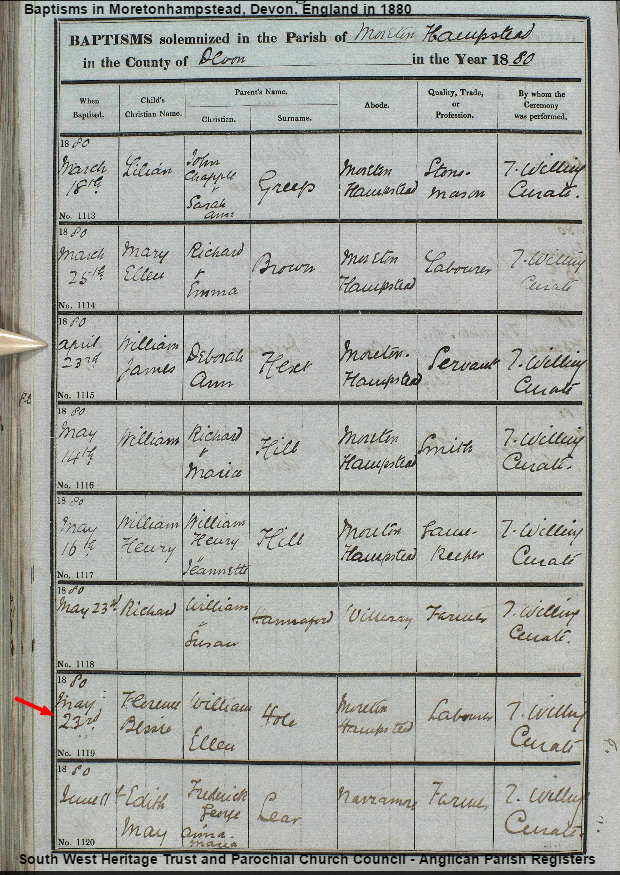 Baptisms in Moretonhampstead, Devon, England in 1880
BAPTISMS solemnized in the Parish of Moreton Hampstead
in the County of Devon in the Year 1880
When Baptised. Child's Christian Name. Parent's Name. Christian. Surname. Abode. Quality, Trade, or Profession. By whom the Ceremony was performed.
1880 March 18th Lilian John Chapple & Sarah Ann Greep Moreton Hampstead Stone-mason T. Willing Curate.
No. 1113
1880 March 25th Mary Ellen Richard & Emma Brown Moreton Hampstead Labourer T. Willing Curate
No. 1114
1880 April 23rd William James Deborah Ann Moreton-Hampstead Servant T. Willing Curate
No. 1115
1880 May 14th William Richard & Maria Hill Moreton Hampstead Smith T. Willing Curate.
No. 1116
1880 May 16th William Henry William Henry Jeannette Hill Moreton Hampstead Game-Keeper T. Willing Curate
No. 1117
1880 May 23rd Richard William & Susan Hannaford Farmer T. Willing Curate.
No. 1118
1880 May 23rd Florence Bessie William & Ellen Hole Moreton Hampstead Labourer T. Willing Curate
No. 1119
1880 June 11th Edith May Frederick George Anna-Maria Lear Narramore Farmer T. Willing Curate.
No. 1120
South West Heritage Trust and Parochial Church Council - Anglican Parish Registers